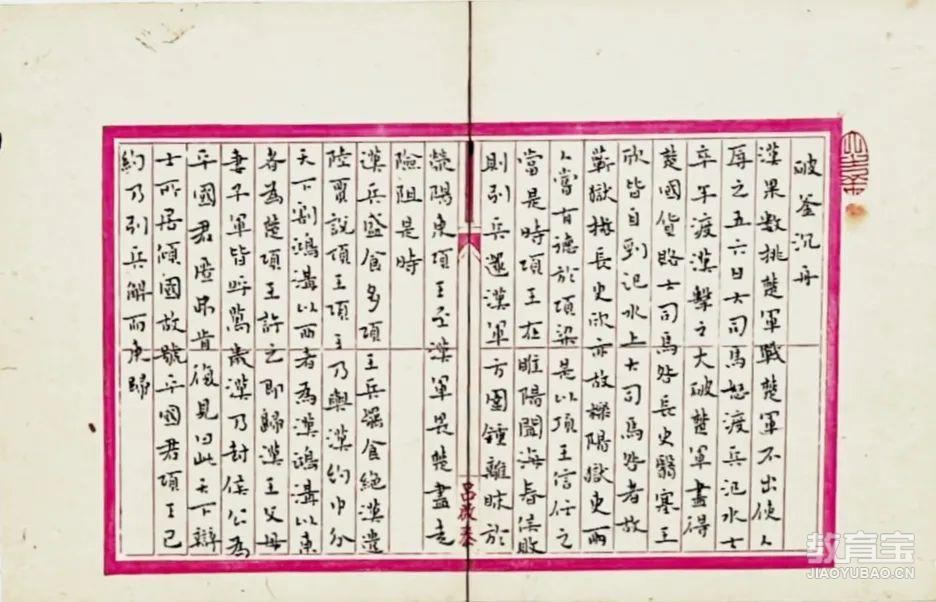 破釜沉舟
漢果數挑楚軍戰楚軍不出使人
辱之五六日大司馬怒渡兵汜水士
卒半渡漢擊之大破楚軍盡得
楚國貨賂大司馬咎長史翳塞王
欣皆自剄汜水上大司馬咎者故
蘄獄掾長史欣亦故櫟陽獄史兩
人嘗有德於項梁是以項王信任之
當是時項王在睢陽聞海春侯敗
則引兵還漢軍方圍鍾離眛於
滎陽東項王至漢軍畏楚盡走
險阻是時
漢兵盛食多項王兵罷食絕漢遣
陸賈說項王項王乃與漢約中分
天下割鴻溝以西者為漢鴻溝以東
者為楚項王許之即歸漢王父母
妻子軍皆呼萬歲漢乃封侯公為
平國君匿弗肯復見曰此天下辯
士所居傾國故號平國君項王已
約乃引兵解而東歸
教育宝
JIAOYUBAO.CN